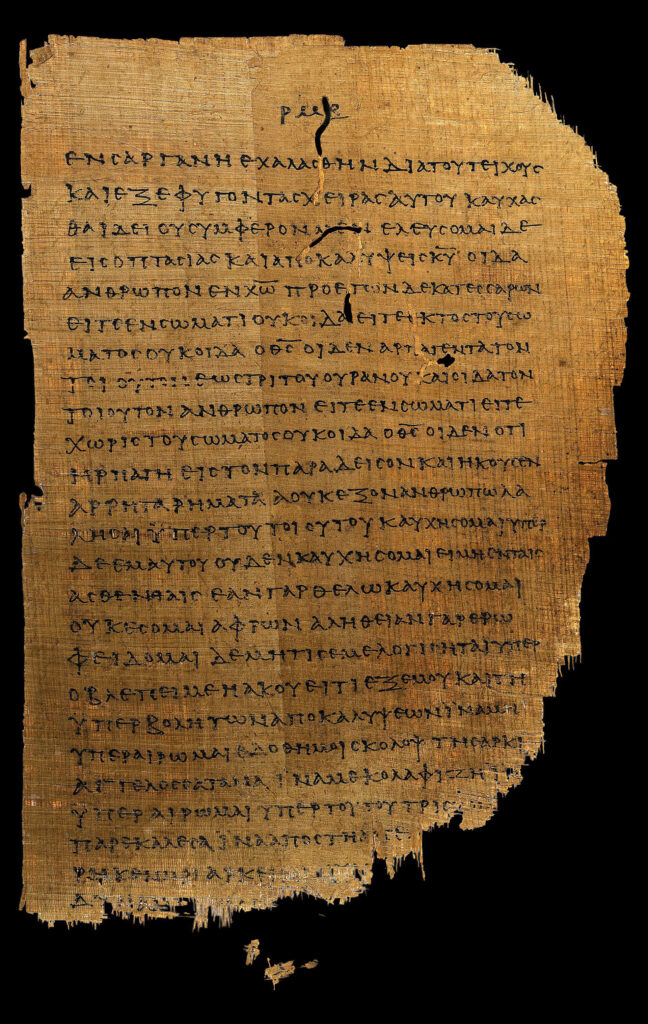 ρμε
ενϲαργανηεχαλαϲθηνδιατουτειχουϲ
καιεξεφυγονταϲχειραϲαυτου καυχαϲ
θαιδει ουϲυμφερονμεν ελευϲομαιδε
ειϲοπταϲιαϲκαιαποκαλυψειϲκ̅υ̅ οιδα
ανθρωπονενχ̅ω̅ προετωνδεκατεϲϲαρων
ειτεενϲωματιουκοιδαειτεεκτοϲτουϲω
ματοϲουκοιδα οθ̅ϲ̅ οιδεναρπαγεντατον
τοιουτονεωϲτριτουουρανουκαιοιδατον
τοιουτονανθρωπονειτεενϲωματιειτε
χωριϲτουϲωματοϲουκοιδα οθ̅ϲ̅ οιδενοτι
ηρπαγηειϲτονπαραδειϲονκαιηκουϲεν
αρρηταρηματα αουκεξονανθρωπωλα
ληϲαι ϋπερτουτοιουτουκαυχηϲομαιυπερ
δεεμαυτουουδενκαυχηϲομαιειμηενταιϲ
αϲθενειαιϲ εανγαρθελωκαυχηϲομαι
ουκεϲομαιαφρων αληθειανγαρερω
φειδομαιδεμητιϲεμελογιϲηταιυπερ
οβλεπειμεηακουειτιεξεμουκαιτη
υπερβολητωναποκαλυψεωνιναμη
υπεραιρωμαιεδοθημοιϲκολοψτηϲαρκι
αγγελοϲϲαταναιναμεκολαφιζηι
ϋπεραιρωμαιυπερτουτουτριϲ
παρεκαλεϲαιινααποϲτη
ρηκενμοιαρκε